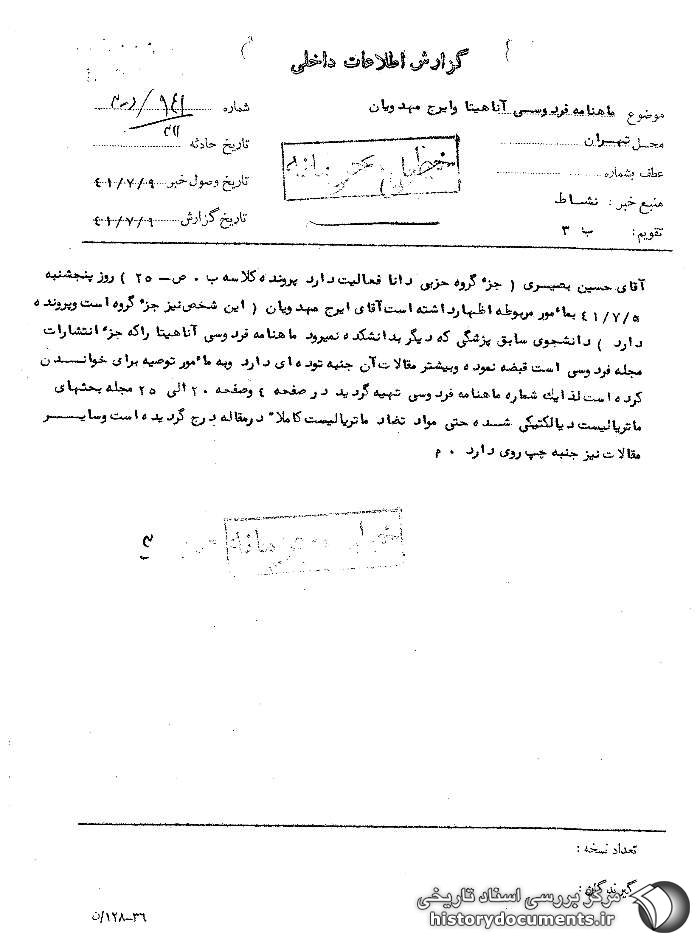 گزارش اطلاعات داخلی
موضوع ماهنامه فردوسی آناهیتا وایرج مهدویان
شماره ۹۴۱/
۳۲۱
محل تهران
تاریخ حادثه
عطف بشماره
خیلی محرمانه
تاریخ وصول خبر ۴۱/۷/۹
منبع خبر: نشاط
تاریخ گزارش ۴۱/۷/۹
تقویم: ب ۳
آقای حسین بصیری ( جزء گروه حزبی دانا فعالیت دارد پرونده کلاسه ب ۰ ص–۲۵ ) روز پنجشنبه
۴۱/۷/۵ بمأمور مربوطه اظهارداشته است آقای ایرج مهدویان ( این شخص نیز جزء گروه است وپرونده
دارد ) دانشجوی سابق پزشگی که دیگر بدانشکده نمیرود ماهنامه فردوسی آناهیتا راکه جزء انتشارات
مجله فردوسی است قبضه نموده وبیشتر مقالات آن جنبه توده ای دارد وبه مأمور توصیه برای خوانسدن
کرده است لذا یك شماره ماهنامه فردوسی تهیه گردید در صفحه ۴ وصفحه ۲۰ الی ۲۵ مجله بحثهای
ماتریالیست دیالکتیکی شده حتی مواد تضاد ماتریالیست کاملاً درمقاله درج گردیده است وسایسر
مقالات نیز جنبه چپ روی دارد ۰ م
خیلی محرمانه
تعداد نسخه :
گیرندگان :
۳۶–۱۲۸/ن
مرکز بررسی اسناد تاریخی
historydocuments.ir